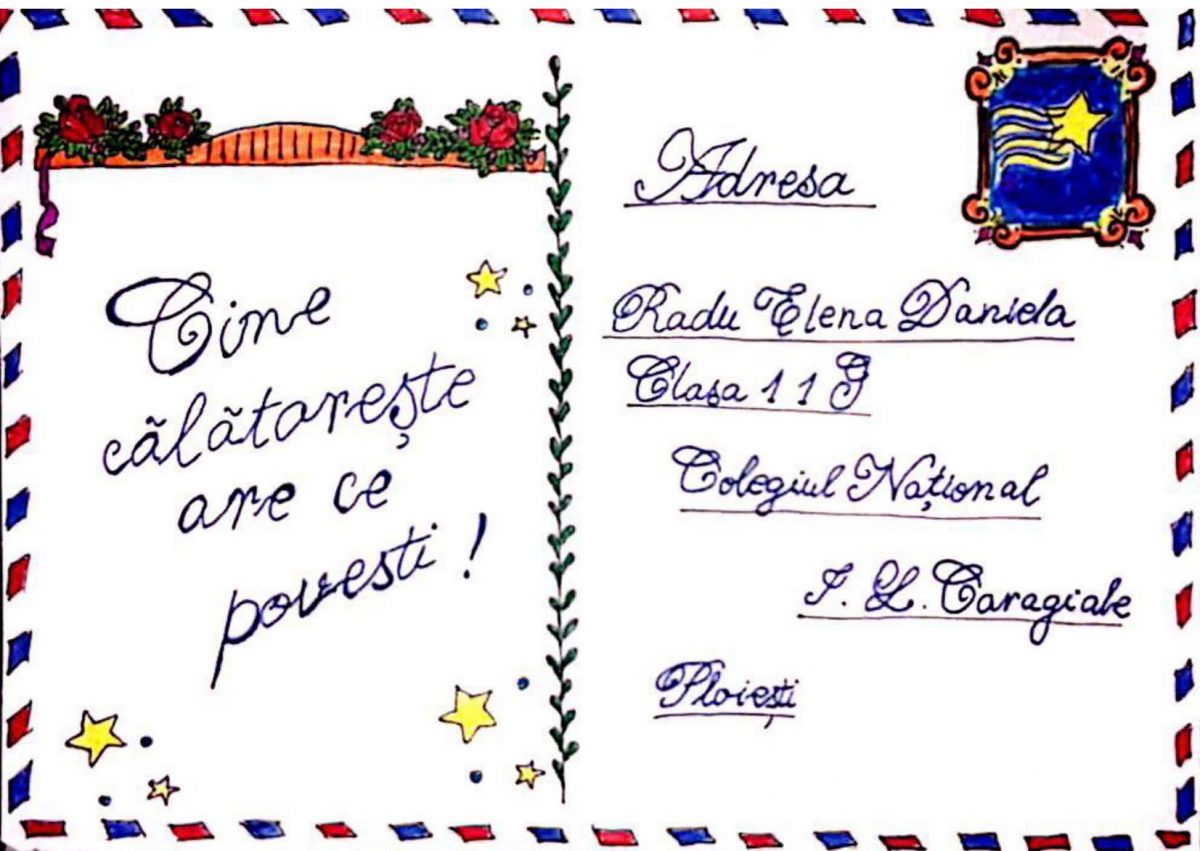 Cine
călătorește
are ce
povesti!
Adresa
Radu Elena Daniela
Clasa 11 G
Colegiul Național
I. L. Caragiale
Ploiești